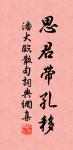 思君带孔移
潘大临散句词典网集